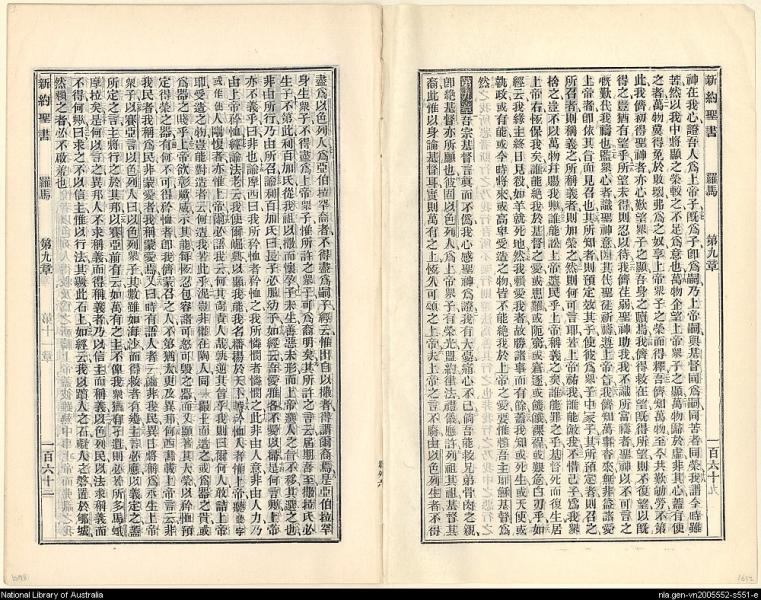 新約聖書 羅馬 第九章 一百六十
神在我心證吾人爲上帝子旣爲子即爲嗣乃上帝嗣與基督同爲嗣同苦者同榮我謂今時雖
苦然以我中將顯之榮較之不足爲意也萬物企望上帝眾子之顯萬物歸於虛非其心蓋有使
之者萬物冀得免於敗壞弗爲之奴享上帝眾子之榮而得釋吾儕知萬物至今共歎劬勞不第
此我儕初得聖神者亦心歎望眾子之顯吾身之贖焉我儕得救在望旣得所望則不復望以旣
得之豈猶有望乎所望未得則忍以待我儕荏弱聖神助我我不識所當禱者聖神以不可言之
慨歎代我禱也鑒眾心者識聖神意因其代聖徒祈禱遵上帝旨我儕知萬事來無非益諸愛
上帝者即依其旨而見召也其所知者則預定效其子使彼爲眾子中冢子其所預定者則召之
所召者則稱義之所稱義者則加榮之然則何可言耶若上帝祐我誰能敵我不惜己子爲我眾
捨之豈不以萬物并賜我與誰能訟上帝選民乎上帝稱義之矣誰能罪之乎基督死而復生居
上帝右恒保我矣誰能絕我於基督之愛或患難或阨窮或窘逐或饑餓裸裎或艱危白刃乎如
經云我緣主終日見戮如羊就死地然我賴愛我者故勝諸事而有餘蓋我知或死生或天使或
執政或有能或今時將來或高卑受造之物皆不能絕我於上帝之愛是愛惟恃吾主耶穌基督焉
第九章 吾宗基督言眞而不僞我心感聖神爲證我有大憂痛心不已前吾能救兄弟骨肉之親
即絕基督亦所願也彼固以色列人爲上帝子有榮光盟約律法禮儀應許列祖其祖基督其
裔此惟以身論基督耳實則萬有之上恆久可頌之上帝夫上帝之言不廢由以色列生者不得
新約聖書 羅馬 第九章 一百六十一
盡爲以色列人爲亞伯拉罕裔者不得盡爲嗣子經云惟出自以撒者得謂爾裔焉是亞伯拉罕
身生眾子不得盡爲上帝眾子惟所許之眾子可爲裔明矣其所許之言云屆期吾至撒拉氏必
生子不第此利百加氏從我祖以撒而懷孕子未生善惡未形而上帝選人之旨不移其選之也
非由所行乃由所召諭利百加氏曰長子必服幼子如經云吾愛雅各不愛以掃是何言歟上帝
亦不義乎曰非也諭摩西曰我所矜恤者矜恤之我所憐憫者憐憫之此非由人意非由人力乃
由上帝矜恤經論法老云我使爾崛興以顯我能我名播揚於天下矜恤人者惟上帝聽人
或剛愎者亦惟上帝爾必語我云何其尚責人哉孰逆其旨乎我則曰爾何人敢詰上帝
耶受造之物豈能對造者云何造我若此乎泥塑非權在陶人同一摶土而造之或爲器之貴或
爲器之賤乎上帝欲彰厥威示其能每恆忍包容諸可怒可毀之器而又顯其大榮以矜恤預
定得榮之器有何不可得矜恤者即我儕蒙召之人不第猶太更及異邦何西書載上帝言云非
我民者我稱爲民非蒙愛者我稱蒙愛焉又曰昔有語人者云爾非我民異日將稱爲永生上帝
眾子以賽亞言以色列人曰以色列眾子其數雖如海沙而得救者有幾主行必應以義定之蓋
所定之言主將行之於其邦以賽亞前有云如萬有之主不俾我眾猶有孑遺則必若所多馬蛾
摩拉矣是何以言之異邦人不求稱義而得稱義者乃以信主而稱義以色列民以法求稱義而
不得何歟曰求之不以信主惟以行法其礙此石上如經云我以躓人之石礙人之磐置於郇城
然賴之者必不啟羞也
National Library of Australia
nla.gen-vn2005552-s551-e